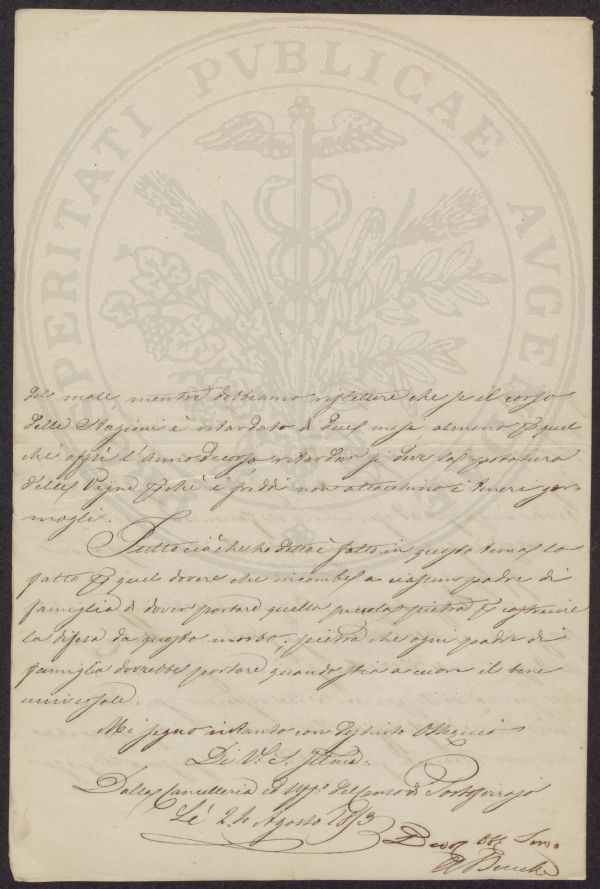 PROSPERITATI PVBLICAE AVGENDAE
del male mentre dobbiamo riflettere che se il corso
delle Stagioni è ritardato di due mesi almeno quel
che offrì l'Anno decorso ritardar si deve la potatura
delle Vigne i freddi non attacchino i teneri ger
mogli.
Tutto ciò che ho detto è fatto in questo tema lo
fatto quel dovere che incombe a ciascun padre di
famiglia di dover portare quella piccola pietra costruire
la difesa da questo morbo; pietra che ogni padre di
famiglia dovrebbe portare quando stia a cuore il bene
universale.
Mi segno intanto con distinto Ossequio
Di V. S. Illma
Dalla Cancelleria ed del Censo di Portoferrajo
Lì 24 Agosto 1853
Devo Obb Servo